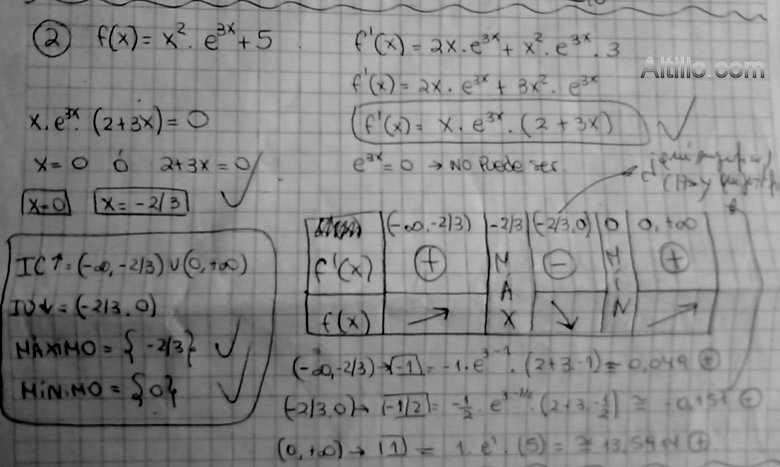 ② f(x) = x². e^3x + 5
f'(x) = 2x. e^3x + x². e^3x. 3
f'(x) = 2x. e^3x + 3x². e^3x
Altillo.com
f'(x) = x. e^3x. (2+3x)
x. e^3x. (2+3x) = 0
x=0 ó 2+3x=0
e^3x = 0 → NO PUEDE SER.
x=0 x=-2/3
(-∞,-2/3) -2/3 (-2/3,0) 0 0,+∞
f'(x) + MÁX - MÍN +
f(x) → ↘ →
IC↑ = (-∞,-2/3) ∪ (0,+∞)
ID↓ = (-2/3,0)
MÁXIMO = {-2/3}
MÍNIMO = {0}
(-∞,-2/3) → -1 = -1. e^3.-1. (2+3.-1) = 0,049 ⊕
(-2/3,0) → -1/2 = -1/2. e^3.-1/2. (2+3.-1/2) ≅ ⊖
(0,+∞) → 1 = 1. (5) = ≅ ⊕